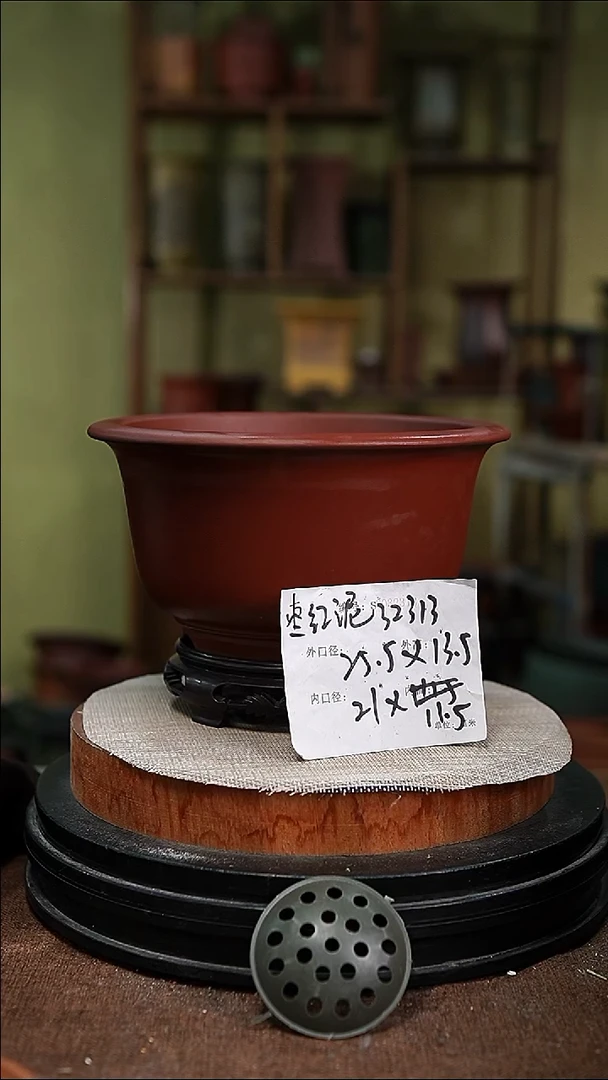 枣红泥 32313
外口径: 25.5×13.5
内口径: 21×11.5
单位: 厘米